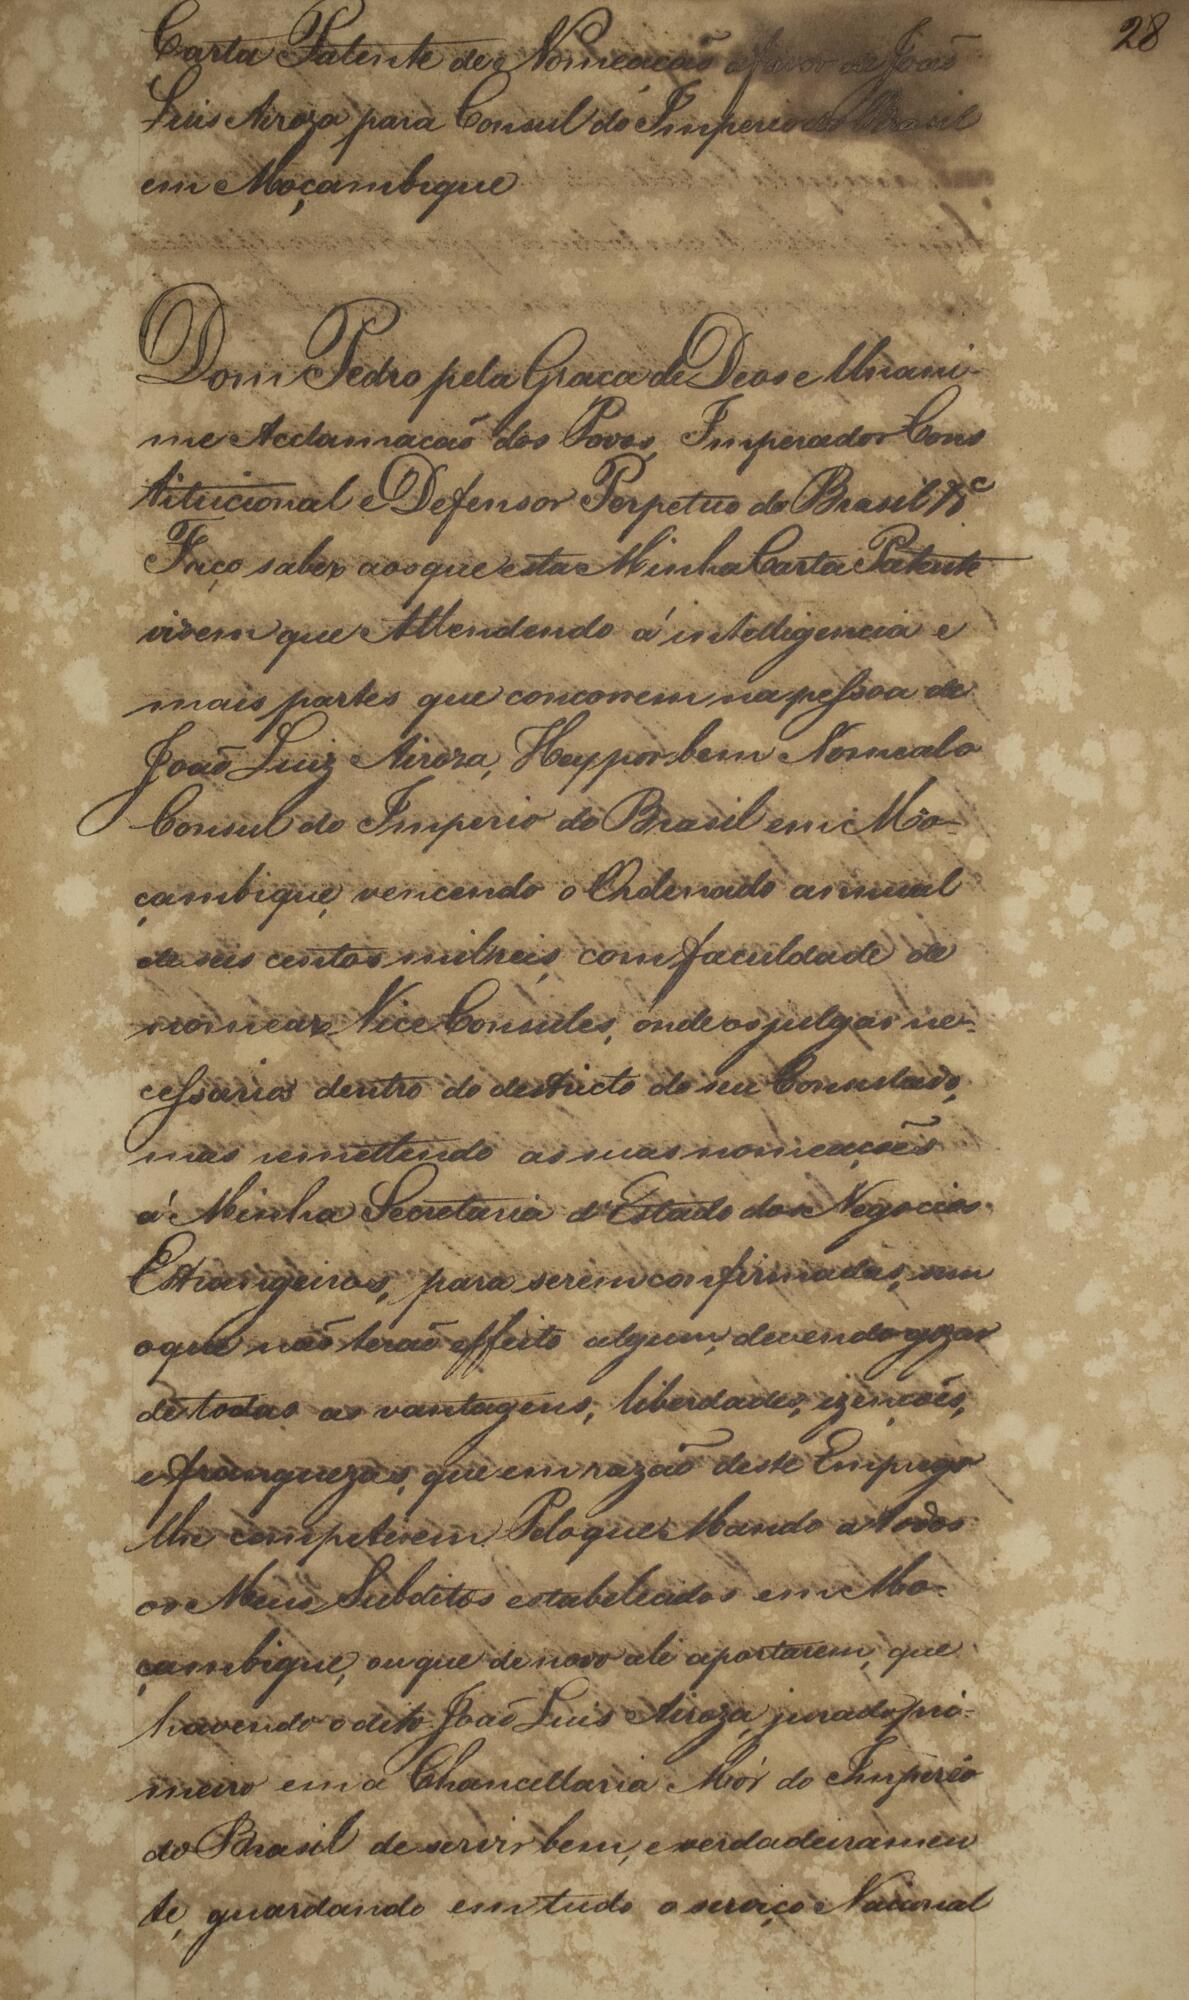 28
Carta Patente de Nomeação a favor de João
Luis Airoza para Consul do Imperio do Brasil
em Moçambique
Dom Pedro pela Graça de Deos e Unani-
me Acclamacaõ dos Povos, Imperador Cons
titucional e Defensor Perpetuo do Brasil &c
Faço saber aos que esta Minha Carta Patente
virem que Attendendo á intelligencia e
mais partes que concorrem na pessoa de
João Luiz Airoza, Hey por bem Nomealo
Consul do Imperio do Brasil em Mo-
çambique, vencendo o Ordenado annual
de seis centos milreis, com faculdade de
nomear Vice Consules, onde os julgar ne-
cessarios dentro do destricto do seu Consulado,
mas remettendo as suas nomeações
á Minha Secretaria d'Estado dos Negocios
Estrangeiros, para serem confirmadas, sem
o que não terão effeito algum, devendo gozar
de todas as vantagens, liberdades, izenções,
e franquezas, que em razão deste Emprego
lhe competirem. Pelo que Mando a todos
os Meus Subditos estabelecidos em Mo-
çambique, ou que de novo ali aportarem, que
havendo o dito João Luis Airoza, jurado pri-
meiro em a Chancellaria Mór do Imperio
do Brasil de servir bem, e verdadeiramen
te, guardando em tudo o serviço Nacional